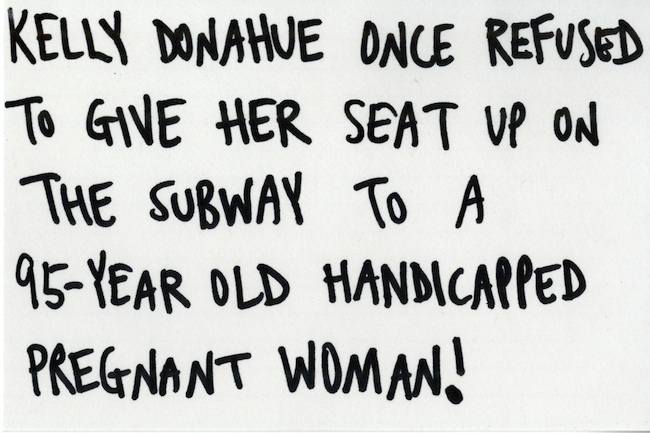 KELLY DONAHUE ONCE REFUSED
TO GIVE HER SEAT UP ON
THE SUBWAY TO A
95-YEAR OLD HANDICAPPED
PREGNANT WOMAN!